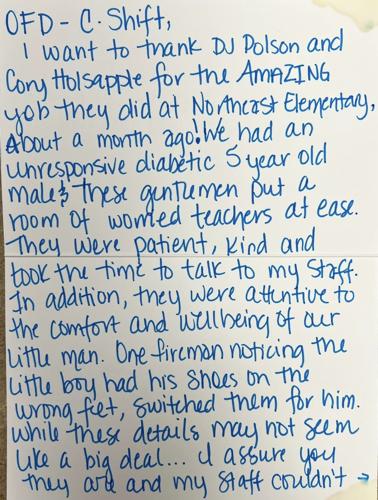 OFD - C. Shift,
I want to thank DJ Polson and
Cory Holsapple for the AMAZING
job they did at Northeast Elementary,
About a month ago! We had an
unresponsive diabetic 5 year old
male & these gentlemen put a
room of worried teachers at ease.
They were patient, kind and
took the time to talk to my staff.
In addition, they were attentive to
the comfort and wellbeing of our
little man. One fireman noticing the
little boy had his shoes on the
wrong feet, switched them for him.
While these details may not seem
like a big deal... I assure you
they are and my staff couldn't →